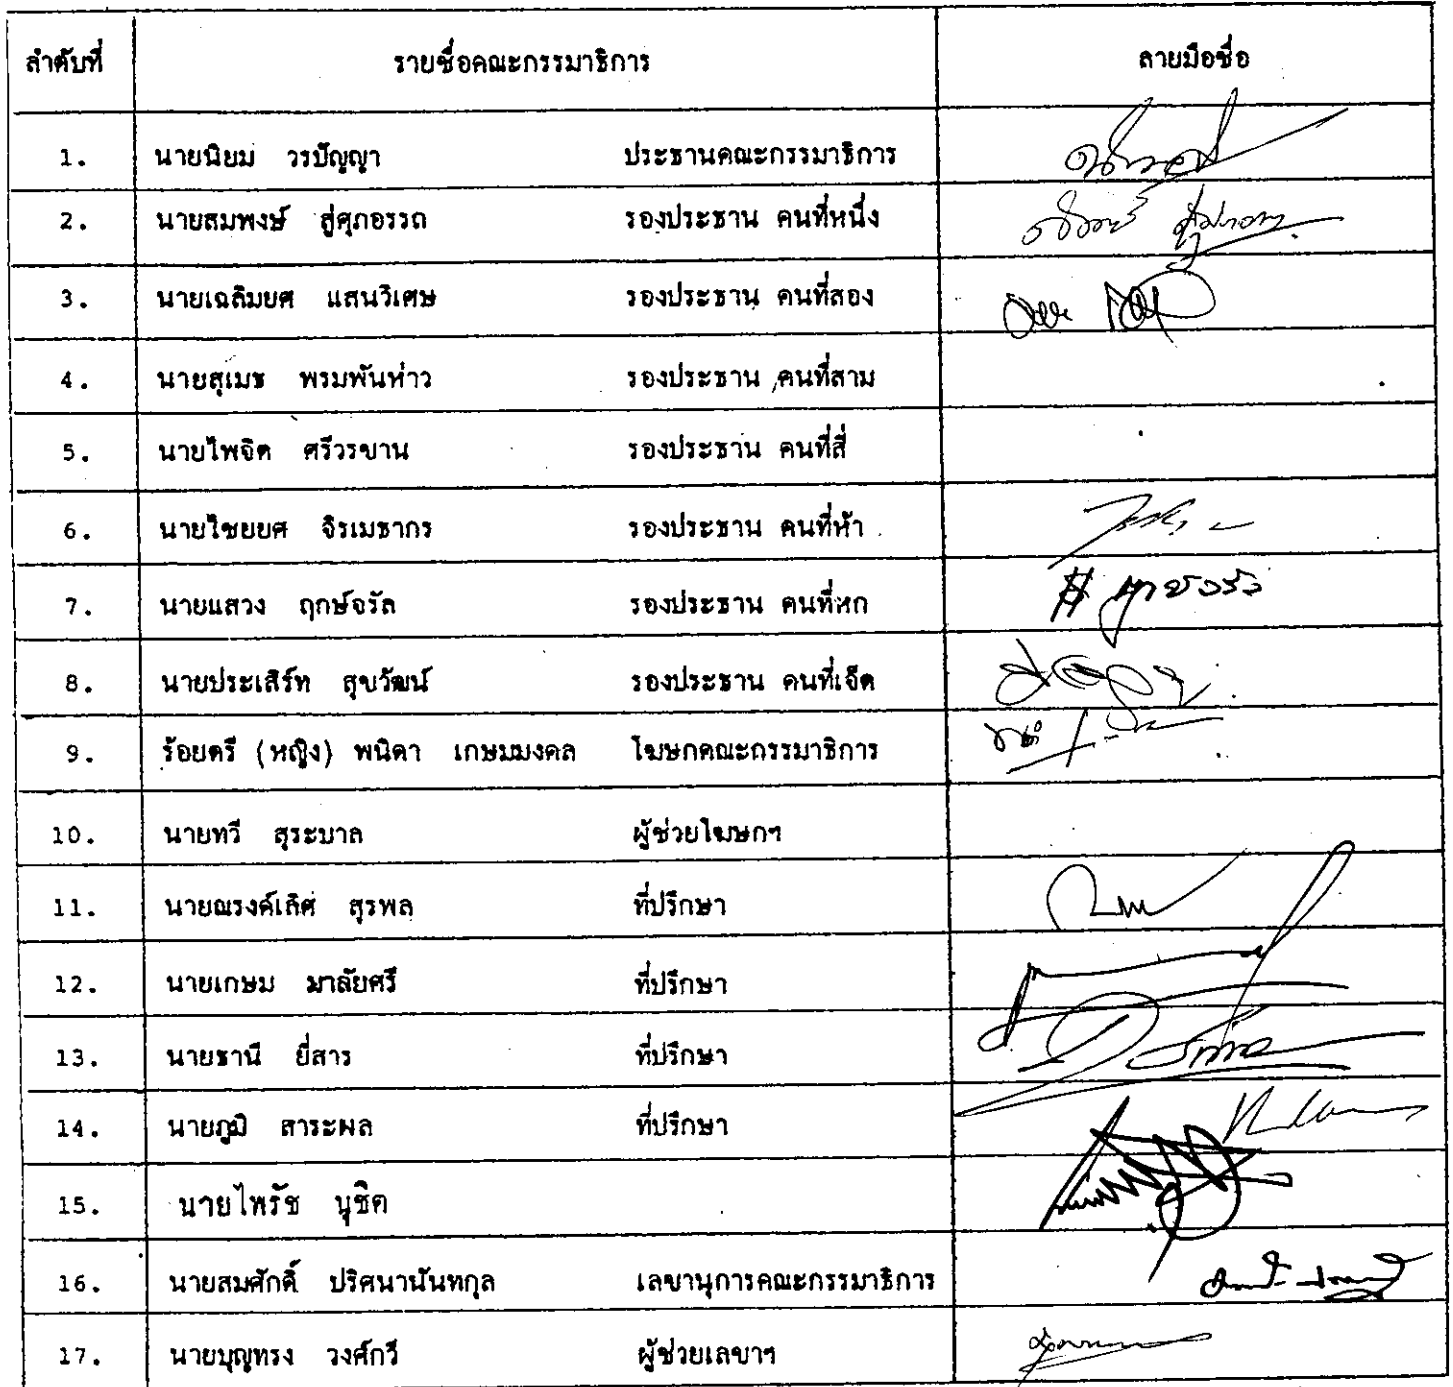 ลำดับที่ รายชื่อคณะกรรมาธิการ ลายมือชื่อ
1. นายนิยม วรปัญญา ประธานคณะกรรมาธิการ
2. นายสมพงษ์ สู่ศุภอรรถ รองประธาน คนที่หนึ่ง
3. นายเฉลิมยศ แสนวิเศษ รองประธาน คนที่สอง
4. นายสุเมธ พรมพันห่าว รองประธาน คนที่สาม
5. นายไพจิต ศรีวรขาน รองประธาน คนที่สี่
6. นายไชยยศ จิรเมธากร รองประธาน คนที่ห้า
7. นายแสวง ฤกษ์จรัล รองประธาน คนที่หก
8. นายประเสิร์ท สุขวัฒน์ รองประธาน คนที่เจ็ด
9. ร้อยตรี (หญิง) พนิดา เกษมมงคล โฆษกคณะกรรมาธิการ
10. นายทวี สุระบาล ผู้ช่วยโฆษกฯ
11. นายณรงค์เลิศ สุรพล ที่ปรึกษา
12. นายเกษม มาลัยศรี ที่ปรึกษา
13. นายธานี ยี่สาร ที่ปรึกษา
14. นายภูมิ สาระผล ที่ปรึกษา
15. นายไพรัช นุชิต
16. นายสมศักดิ์ ปริศนานันทกุล เลขานุการคณะกรรมาธิการ
17. นายบุญทรง วงศ์กวี ผู้ช่วยเลขาฯ